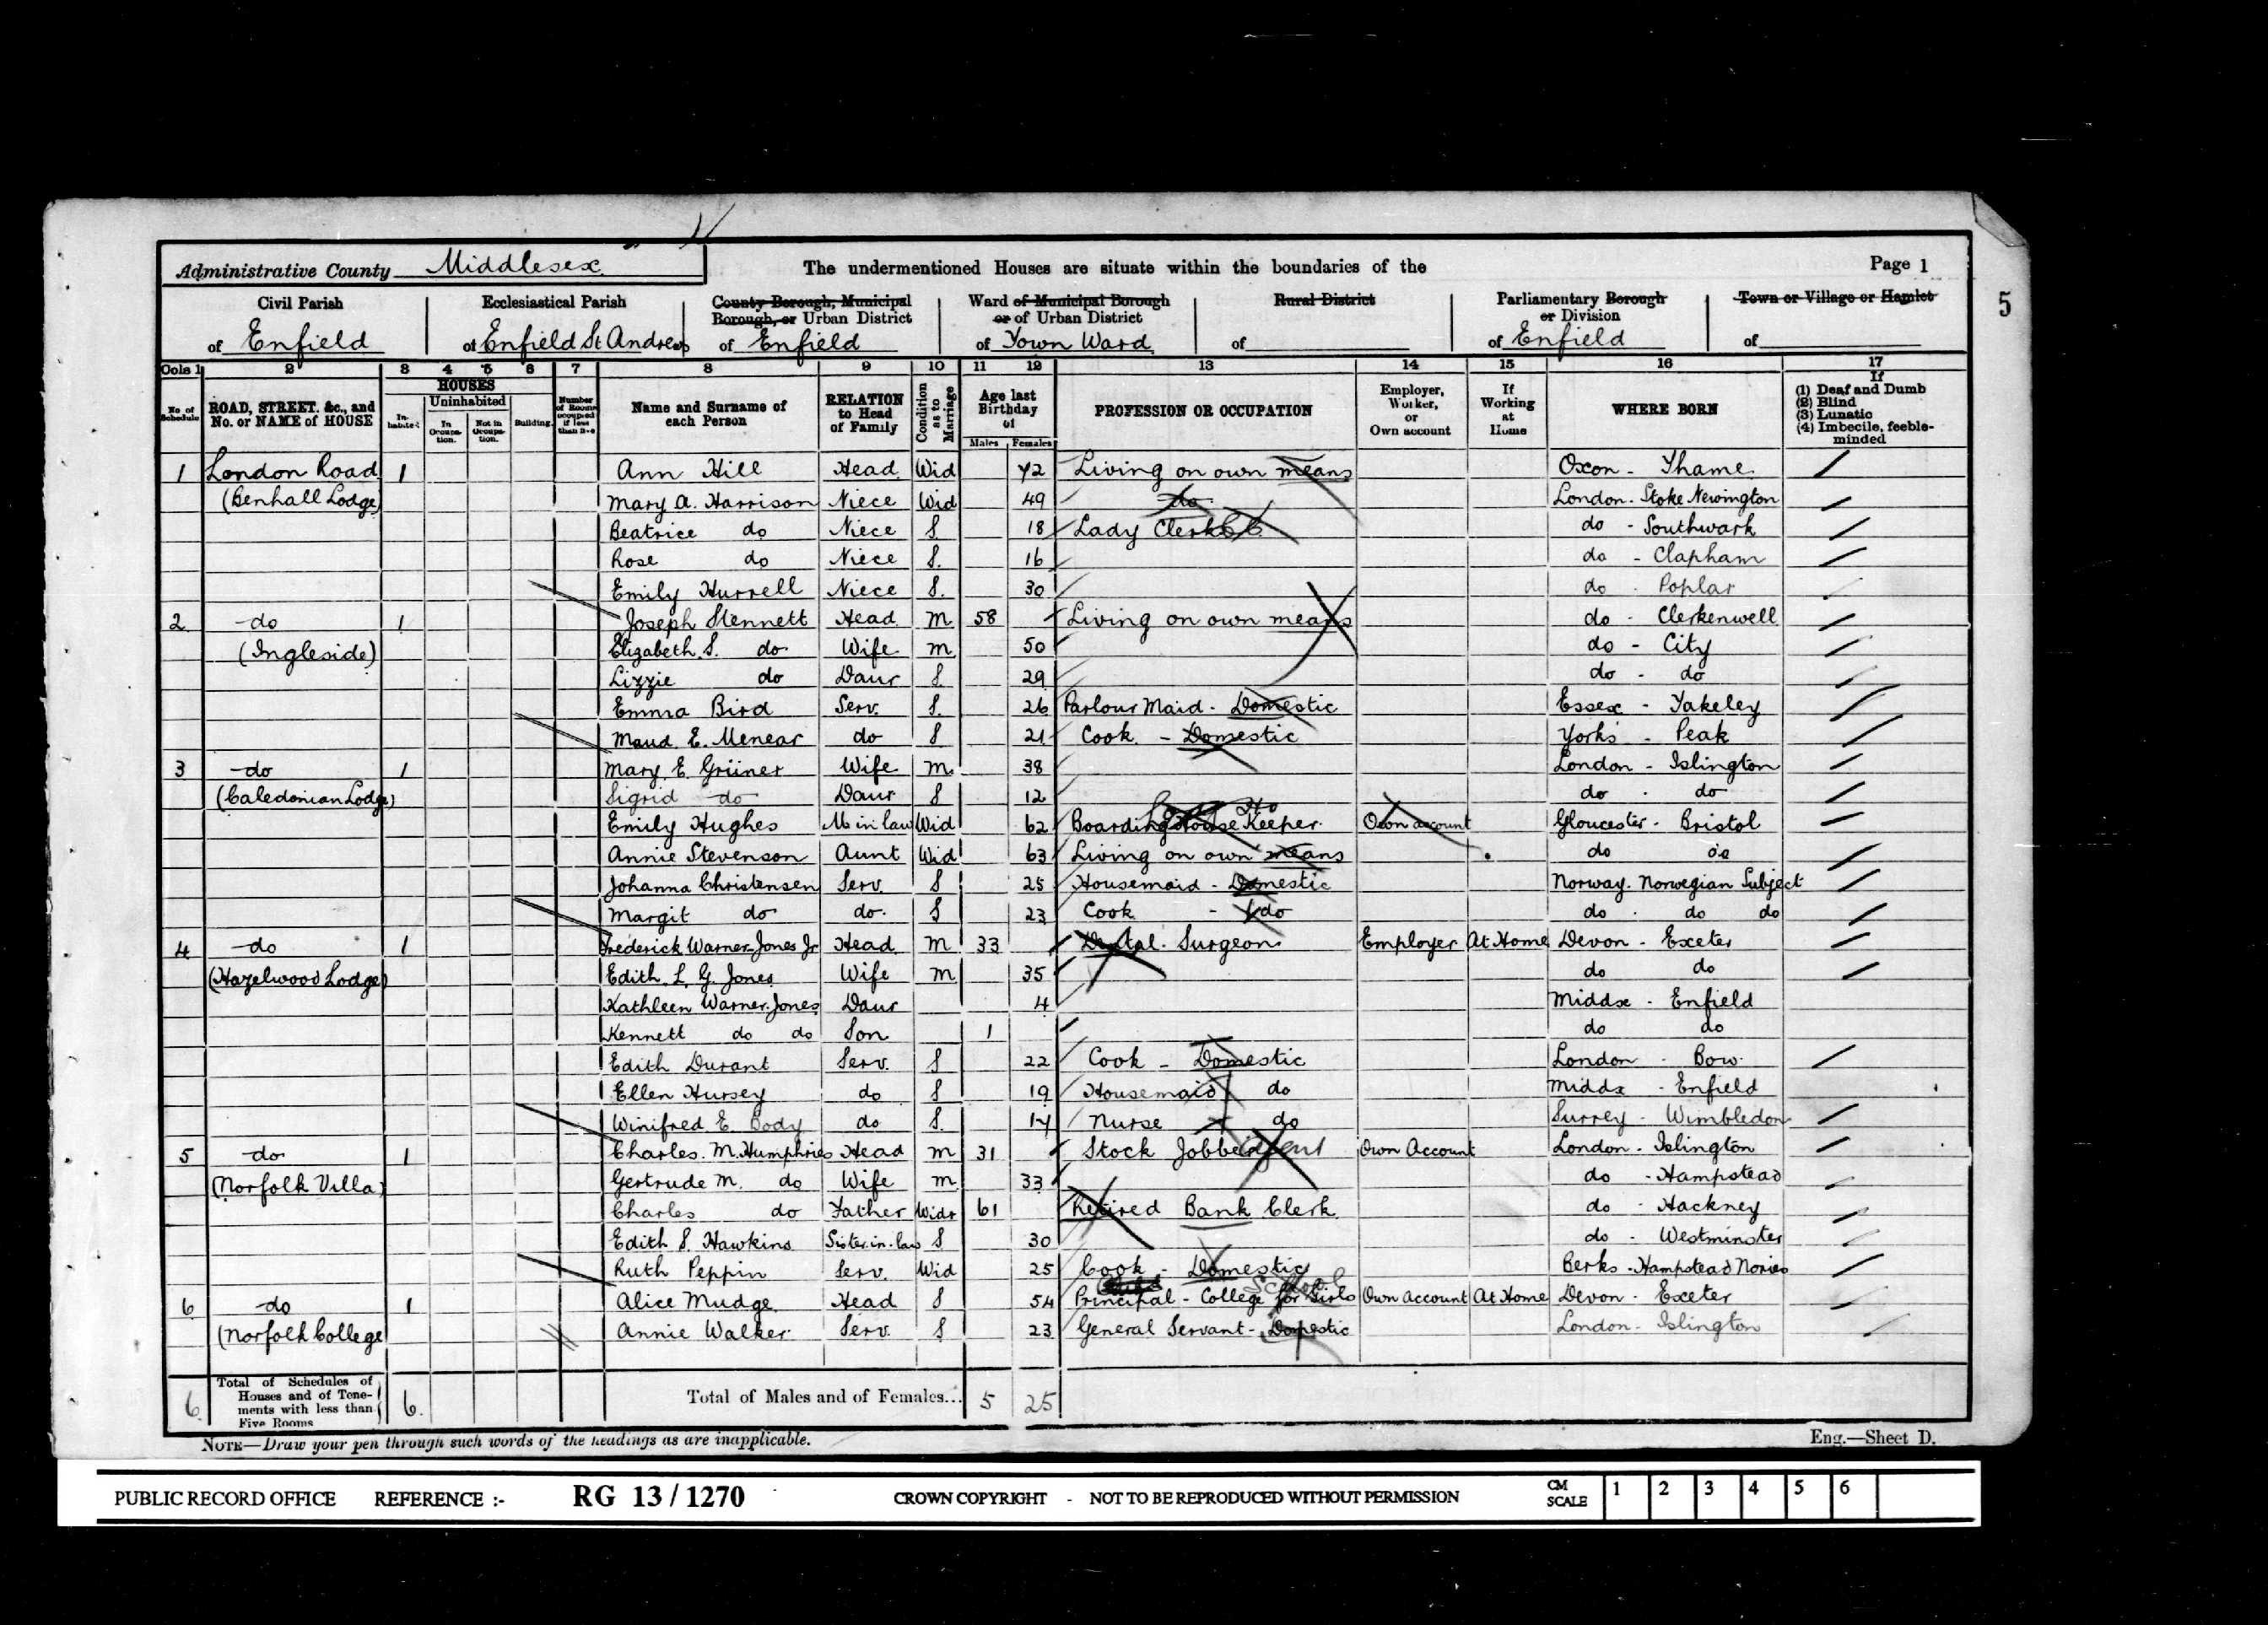 Administrative County Middlesex
The undermentioned Houses are situate within the boundaries of the
Page 1
5
Civil Parish of Enfield
Ecclesiastical Parish of Enfield St Andrews
County Borough, Municipal Borough, or Urban District of Enfield
Ward of Municipal Borough or of Urban District of Town Ward
Rural District of
Parliamentary Borough or Division of Enfield
Town or Village or Hamlet of
Cols 1 2 3 4 5 6 7 8 9 10 11 12 13 14 15 16 17
No of Schedule
ROAD, STREET, &c., and No. or NAME of HOUSE
HOUSES
Inhabited
Uninhabited
In Occupation.
Not in Occupation.
Building.
Number of Rooms occupied if less than five
Name and Surname of each Person
RELATION to Head of Family
Condition as to Marriage
Age last Birthday of
Males Females
PROFESSION OR OCCUPATION
Employer, Worker, or Own account
If Working at Home
WHERE BORN
If
(1) Deaf and Dumb
(2) Blind
(3) Lunatic
(4) Imbecile, feeble-minded
1 London Road 1 Ann Hill Head Wid 72 Living on own means Oxon - Thame
(Benhall Lodge) Mary A. Harrison Niece Wid 49 do London - Stoke Newington
Beatrice do Niece S. 18 Lady Clerk do - Southwark
Rose do Niece S. 16 do - Clapham
Emily Hurrell Niece S. 30 do - Poplar
2 do 1 Joseph Stennett Head M 58 Living on own means do - Clerkenwell
(Ingleside) Elizabeth S. do Wife M 50 do - City
Lizzie do Daur S. 29 do - do
Emma Bird Serv. S. 26 Parlour Maid - Domestic Essex - Takeley
Maud E. Menear do S 21 Cook - Domestic Yorks - Peak
3 do 1 Mary E. Grüner Wife M. 38 London - Islington
(Caledonian Lodge) Sigrid do Daur S 12 do - do
Emily Hughes M in law Wid 62 Boarding House Keeper Own account Gloucester - Bristol
Annie Stevenson Aunt Wid 63 Living on own means do do
Johanna Christensen Serv. S 25 Housemaid - Domestic Norway. Norwegian Subject
Margit do do. S 23 Cook - do do do do
4 do 1 Frederick Warner-Jones Jr Head M 33 Dental Surgeon Employer At Home Devon - Exeter
(Hazelwood Lodge) Edith L. G. Jones Wife M 35 do do
Kathleen Warner-Jones Daur 4 Middx - Enfield
Kennett do do Son 1 do do
Edith Durant Serv. S 22 Cook - Domestic London - Bow
Ellen Hursey do S 19 Housemaid do Middx - Enfield
Winifred E. Body do S. 14 Nurse do Surrey - Wimbledon
5 do 1 Charles. M. Humphries Head M 31 Stock Jobber Agent Own Account London - Islington
(Norfolk Villa) Gertrude M. do Wife M 33 do - Hampstead
Charles do Father Widr 61 Retired Bank Clerk do - Hackney
Edith S. Hawkins Sister.in.law S 30 do - Westminster
Ruth Peppin Serv. Wid 25 Cook - Domestic Berks - Hampstead Nories
6 do 1 Alice Mudge Head S 54 Principal - College for Girls School Own Account At Home Devon - Exeter
(Norfolk College Annie Walker Serv. S 23 General Servant - Domestic London - Islington
6. Total of Schedules of Houses and of Tenements with less than Five Rooms 6. Total of Males and of Females... 5 25
NOTE—Draw your pen through such words of the headings as are inapplicable.
Eng.—Sheet D.
PUBLIC RECORD OFFICE REFERENCE :- RG 13 / 1270 CROWN COPYRIGHT - NOT TO BE REPRODUCED WITHOUT PERMISSION CM SCALE 1 2 3 4 5 6